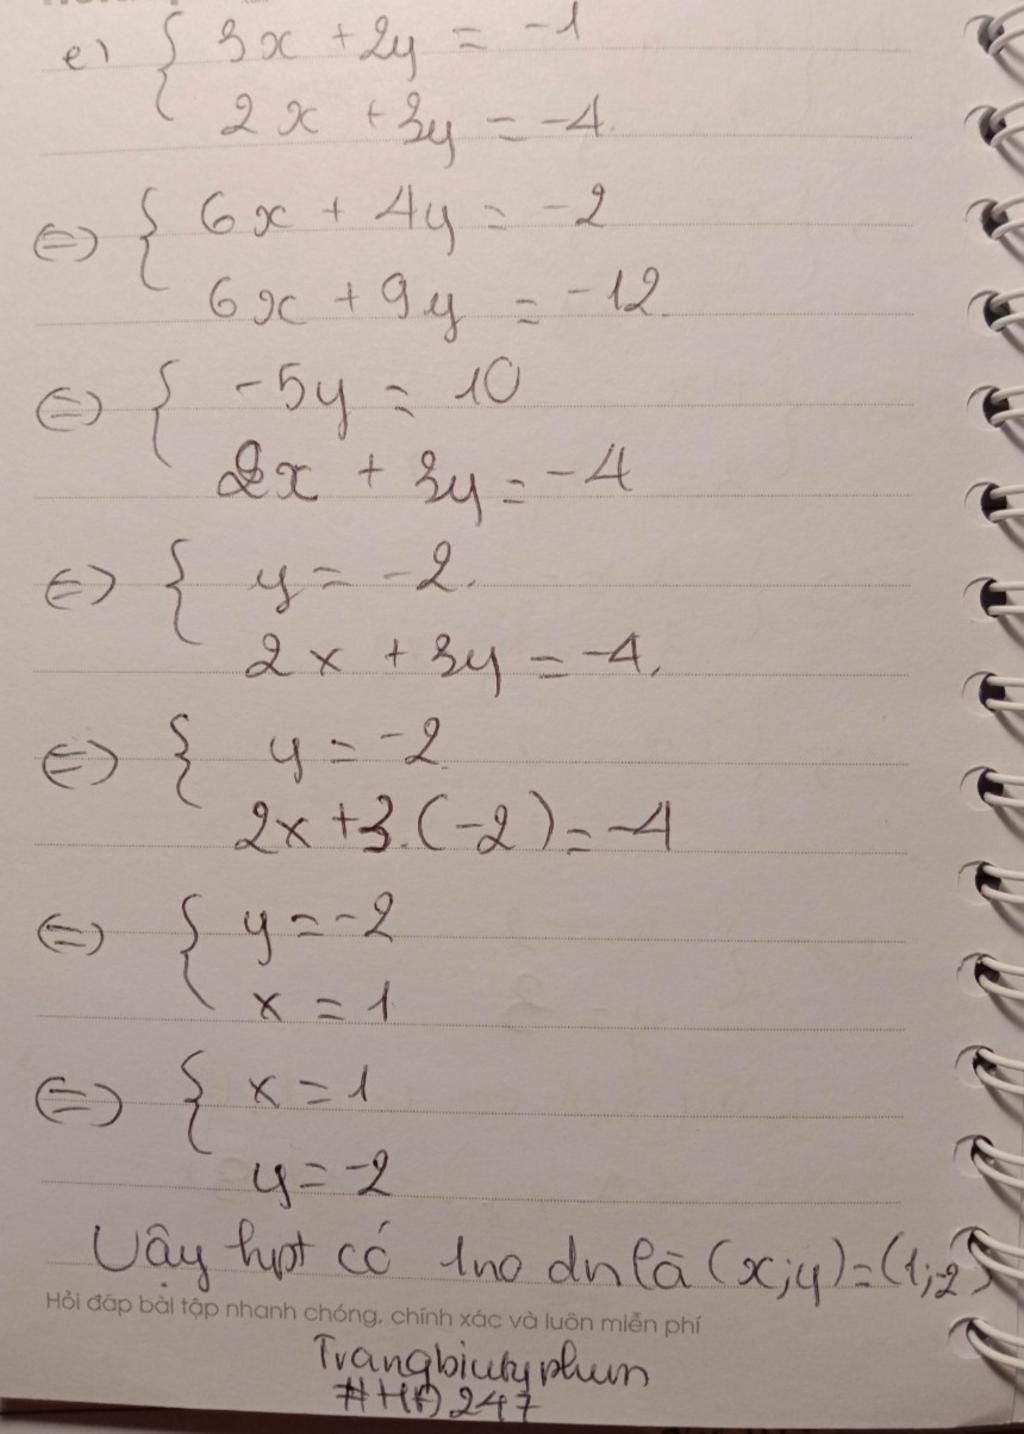 e) { 3x + 2y = -1
2x + 3y = -4.
⇔ { 6x + 4y = -2
6x + 9y = -12.
⇔ { -5y = 10
2x + 3y = -4
⇔ { y = -2.
2x + 3y = -4.
⇔ { y = -2.
2x + 3.(-2) = -4
⇔ { y = -2
x = 1
⇔ { x = 1
y = -2
Vậy hpt có 1no dn là (x;y) = (1;-2)
Hỏi đáp bài tập nhanh chóng, chính xác và luôn miễn phí
#HĐ247